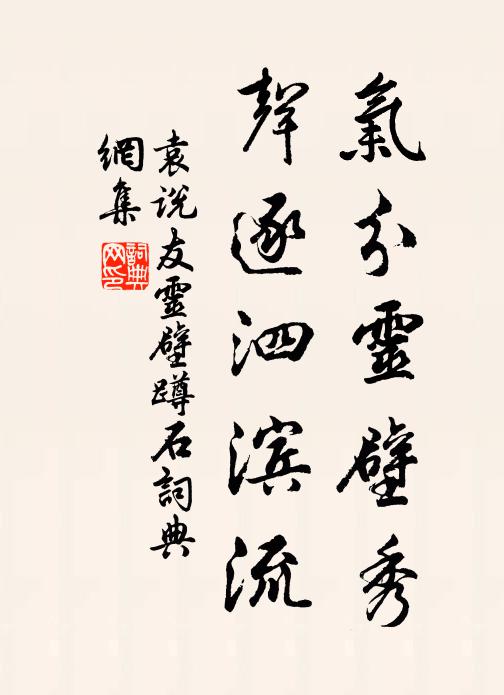 氣分靈壁秀
聲逐泗滨流
袁说友靈壁蹲石詞典
網集
詞典
网印